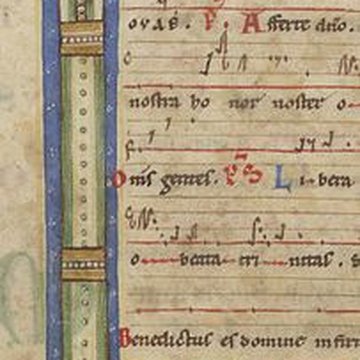 ouas. P. Afferte dno.
nostra ho nor noster o
Oms gentes. Ps Libera
o beata tri nitas. 
Benedictus es domine in fir